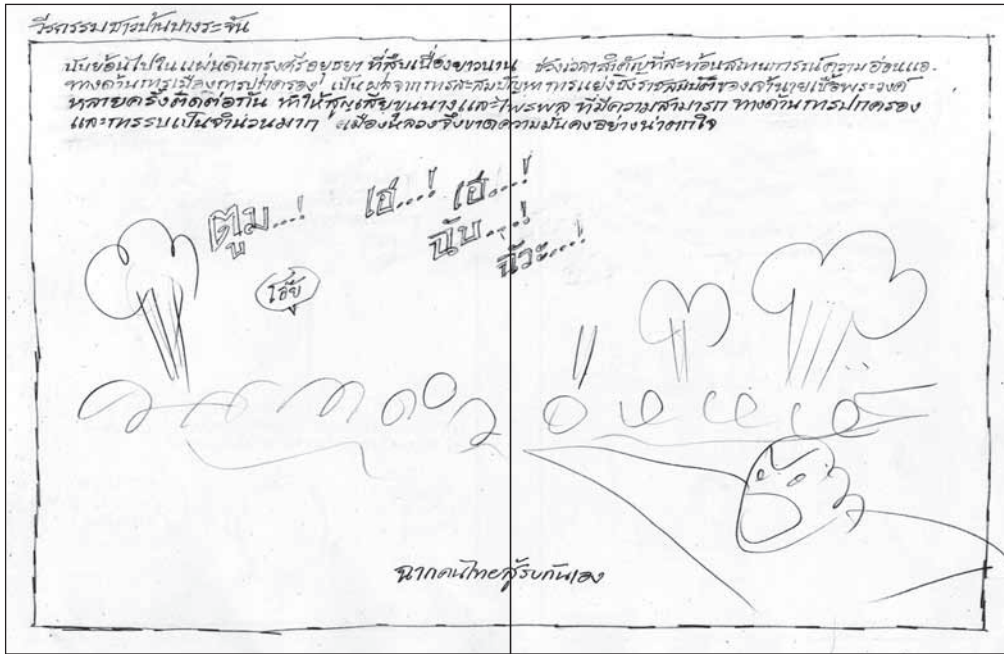 วีรกรรมชาวบ้านบางระจัน
นับย้อนไปในแผ่นดินกรุงศรีอยุธยา ที่สืบเนื่องยาวนาน ช่วงเวลาสำคัญที่สะท้อนสถานการณ์ความอ่อนแอ
ทางด้านการเมืองการปกครอง เป็นผลจากการสะสมปัญหาการแย่งชิงราชสมบัติของเจ้านายเชื้อพระวงศ์
หลายครั้งติดต่อกัน ทำให้สูญเสียขุนนางและไพร่พล ที่มีความสามารถ ทางด้านการปกครอง
และการรบเป็นจำนวนมาก เมืองหลวงจึงขาดความมั่นคงอย่างน่าตกใจ
ตูม...! เฮ่...! เฮ...!
ฉับ...!
ฉัวะ...!
โอ๊ย
ฉากคนไทยสู้รบกันเอง